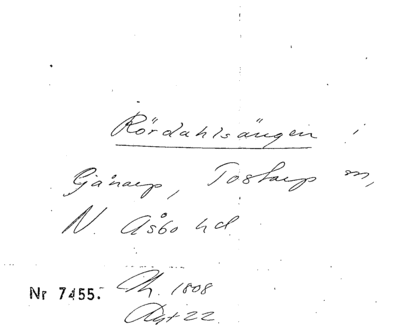 Rördahlsängen i
Gjånarp, Tostarp m,
N. Åsbo hd
Nr 7455. Th. 1808
Akt 22